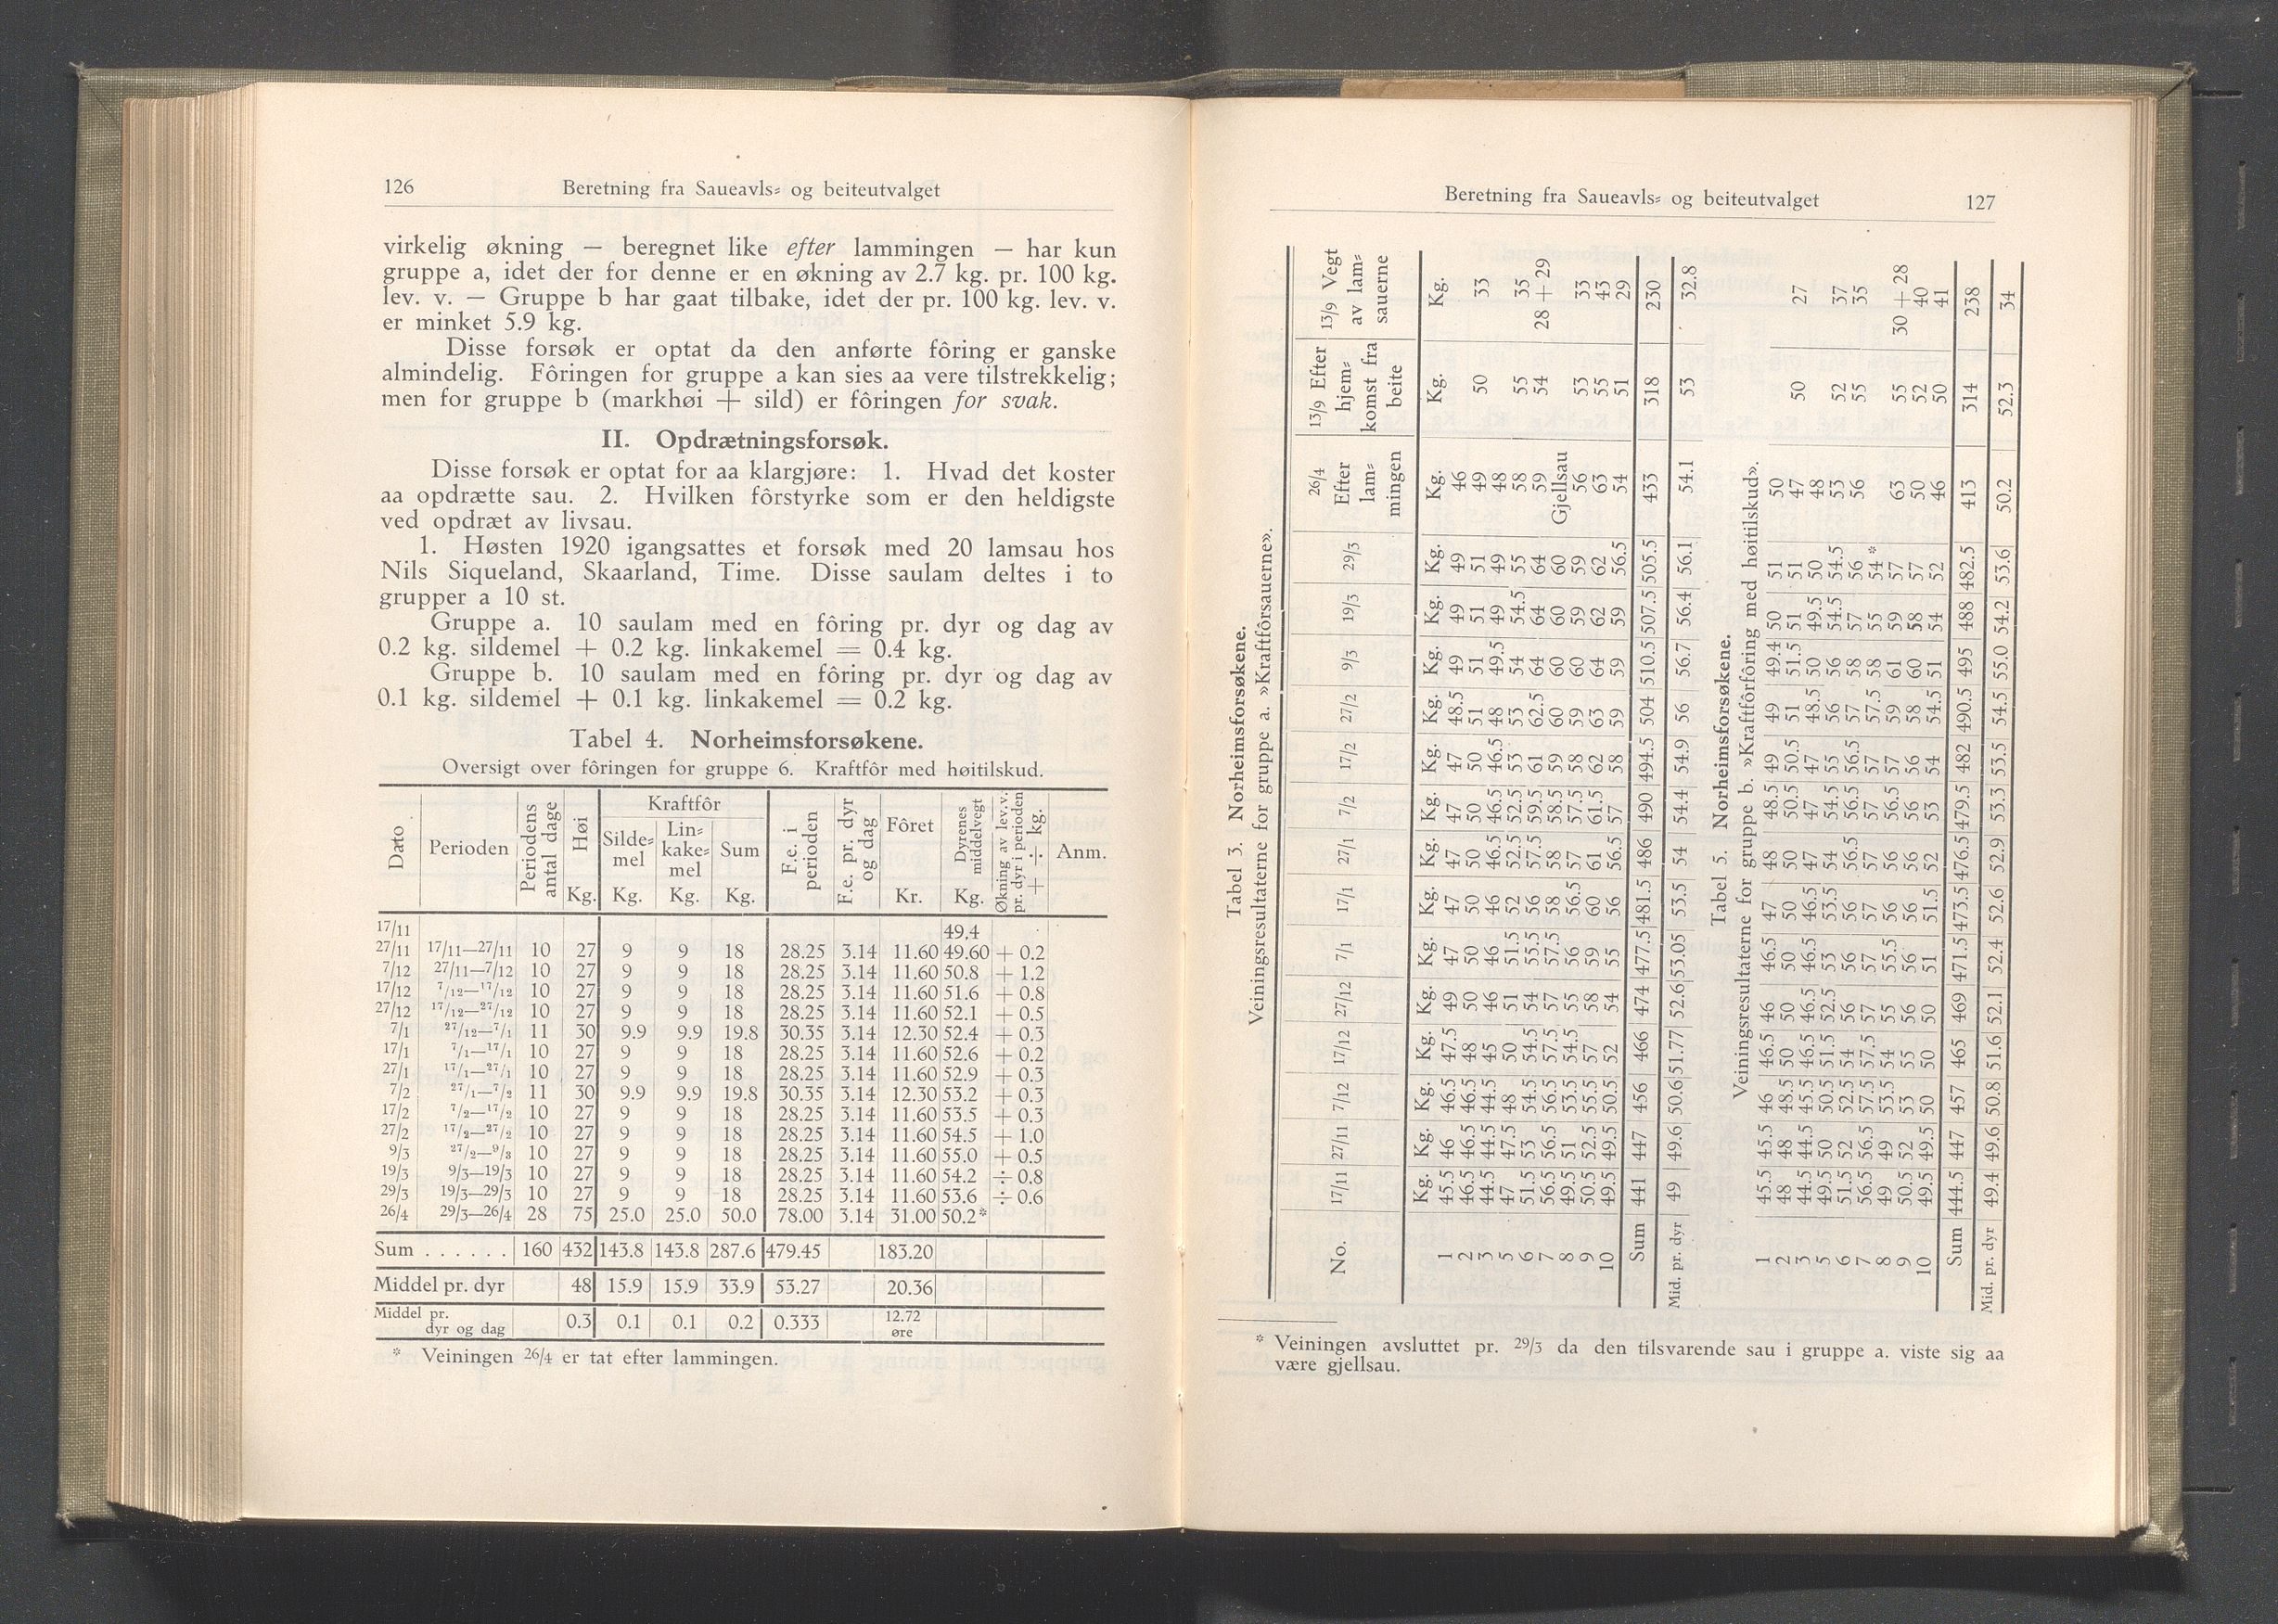 126 Beretning fra Saueavls- og beiteutvalget
virkelig økning — beregnet like efter lammingen — har kun
gruppe a, idet der for denne er en økning av 2.7 kg. pr. 100 kg.
lev. v. — Gruppe b har gaat tilbake, idet der pr. 100 kg. lev. v.
er minket 5.9 kg.
Disse forsøk er optat da den anførte fôring er ganske
almindelig. Fôringen for gruppe a kan sies aa vere tilstrekkelig;
men for gruppe b (markhøi + sild) er fôringen for svak.
II. Opdrætningsforsøk.
Disse forsøk er optat for aa klargjøre: 1. Hvad det koster
aa opdrætte sau. 2. Hvilken fôrstyrke som er den heldigste
ved opdræt av livsau.
1. Høsten 1920 igangsattes et forsøk med 20 lamsau hos
Nils Siqueland, Skaarland, Time. Disse saulam deltes i to
grupper a 10 st.
Gruppe a. 10 saulam med en fôring pr. dyr og dag av
0.2 kg. sildemel + 0.2 kg. linkakemel = 0.4 kg.
Gruppe b. 10 saulam med en fôring pr. dyr og dag av
0.1 kg. sildemel + 0.1 kg. linkakemel = 0.2 kg.
Tabel 4. Norheimsforsøkene.
Oversigt over fôringen for gruppe 6. Kraftfôr med høitilskud.
Dato | Perioden | Periodens antal dage | Høi Kg. | Kraftfôr: Sildemel Kg. | Linkakemel Kg. | Sum Kg. | F.e. i perioden | F.e. pr. dyr og dag | Fôret Kr. | Dyrenes middelvegt Kg. | Økning av lev.v. pr. dyr i perioden + ÷ kg. | Anm.
17/11 49.4
27/11 17/11—27/11 10 27 9 9 18 28.25 3.14 11.60 49.60 + 0.2
7/12 27/11—7/12 10 27 9 9 18 28.25 3.14 11.60 50.8 + 1.2
17/12 7/12—17/12 10 27 9 9 18 28.25 3.14 11.60 51.6 + 0.8
27/12 17/12—27/12 10 27 9 9 18 28.25 3.14 11.60 52.1 + 0.5
7/1 27/12—7/1 11 30 9.9 9.9 19.8 30.35 3.14 12.30 52.4 + 0.3
17/1 7/1—17/1 10 27 9 9 18 28.25 3.14 11.60 52.6 + 0.2
27/1 17/1—27/1 10 27 9 9 18 28.25 3.14 11.60 52.9 + 0.3
7/2 27/1—7/2 11 30 9.9 9.9 19.8 30.35 3.14 12.30 53.2 + 0.3
17/2 7/2—17/2 10 27 9 9 18 28.25 3.14 11.60 53.5 + 0.3
27/2 17/2—27/2 10 27 9 9 18 28.25 3.14 11.60 54.5 + 1.0
9/3 27/2—9/3 10 27 9 9 18 28.25 3.14 11.60 55.0 + 0.5
19/3 9/3—19/3 10 27 9 9 18 28.25 3.14 11.60 54.2 ÷ 0.8
29/3 19/3—29/3 10 27 9 9 18 28.25 3.14 11.60 53.6 ÷ 0.6
26/4 29/3—26/4 28 75 25.0 25.0 50.0 78.00 3.14 31.00 50.2*
Sum . . . . . . 160 432 143.8 143.8 287.6 479.45 183.20
Middel pr. dyr 48 15.9 15.9 33.9 53.27 20.36
Middel pr. dyr og dag 0.3 0.1 0.1 0.2 0.333 12.72 øre
* Veiningen 26/4 er tat efter lammingen.
Beretning fra Saueavls- og beiteutvalget 127
Tabel 3. Norheimsforsøkene.
Veiningsresultaterne for gruppe a. »Kraftfôrsauerne».
No. | 17/11 | 27/11 | 7/12 | 17/12 | 27/12 | 7/1 | 17/1 | 27/1 | 7/2 | 17/2 | 27/2 | 9/3 | 19/3 | 29/3 | 26/4 Efter lammingen | 13/9 Efter hjemkomst fra beite | 13/9 Vegt av lamsauerne
Kg. Kg. Kg. Kg. Kg. Kg. Kg. Kg. Kg. Kg. Kg. Kg. Kg. Kg. Kg. Kg. Kg.
1 45.5 46 46.5 47.5 49 47 47 47 47 47 48.5 49 49 49 46
2 46.5 46.5 46.5 48 50 50 50 50 50 50 51 51 51 51 49 50 33
3 44.5 44.5 44.5 45 46 46 46 46.5 46.5 46.5 48 49.5 49 49 48
5 47 47.5 48 50 51 51.5 52 52.5 52.5 53 53 54 54.5 55 58 55 35
6 51.5 53 54.5 54.5 54 55.5 56 57.5 59.5 61 62.5 64 64 64 59 54 28 + 29
7 56.5 56.5 56.5 57.5 57 57.5 58 58 58.5 59 60 60 60 60 Gjellsau
8 49.5 51 53.5 54.5 55 56 56.5 57 57.5 58 59 60 59 59 56 53 33
9 50.5 52.5 55.5 57 58 59 60 61 61.5 62 63 64 62 62 63 55 43
10 49.5 49.5 50.5 52 54 55 56 56.5 57 58 59 59 59 56.5 54 51 29
Sum 441 447 456 466 474 477.5 481.5 486 490 494.5 504 510.5 507.5 505.5 433 318 230
Mid. pr. dyr 49 49.6 50.6 51.77 52.6 53.05 53.5 54 54.4 54.9 56 56.7 56.4 56.1 54.1 53 32.8
Tabel 5. Norheimsforsøkene.
Veiningsresultaterne for gruppe b. »Kraftfôrfôring med høitilskud».
1 45.5 45.5 46 46.5 46 46.5 47 48 48.5 49 49 49.4 50 51 50
2 48 48 48.5 50 50 50 50 50 50.5 50.5 51 51.5 51 51 47 50 27
3 44.5 44.5 45.5 46.5 46.5 46.5 46.5 47 47 47 48.5 50 49.5 50 48
5 49.5 50 50.5 51.5 52.5 53 53.5 54 54.5 55 56 56 54.5 54.5 53 52 37
6 51.5 52 52.5 54 56 56 56 56.5 56.5 56.5 57 58 57 56 56 55 35
7 56.5 56.5 57.5 57.5 57 57 57 57 57 57 57.5 58 55 54*
8 49 49 53.5 54 55 55.5 56 56 56.5 57 59 61 59 57 63 55 30 + 28
9 50.5 52 53 55 56 56 56 56 56 56 58 60 58 57 50 52 40
10 49.5 49.5 50 50 50 51 51.5 52 53 54 54.5 51 54 52 46 50 41
Sum 444.5 447 457 465 469 471.5 473.5 476.5 479.5 482 490.5 495 488 482.5 413 314 238
Mid. pr. dyr 49.4 49.6 50.8 51.6 52.1 52.4 52.6 52.9 53.3 53.5 54.5 55.0 54.2 53.6 50.2 52.3 34
* Veiningen avsluttet pr. 29/3 da den tilsvarende sau i gruppe a. viste sig aa
være gjellsau.